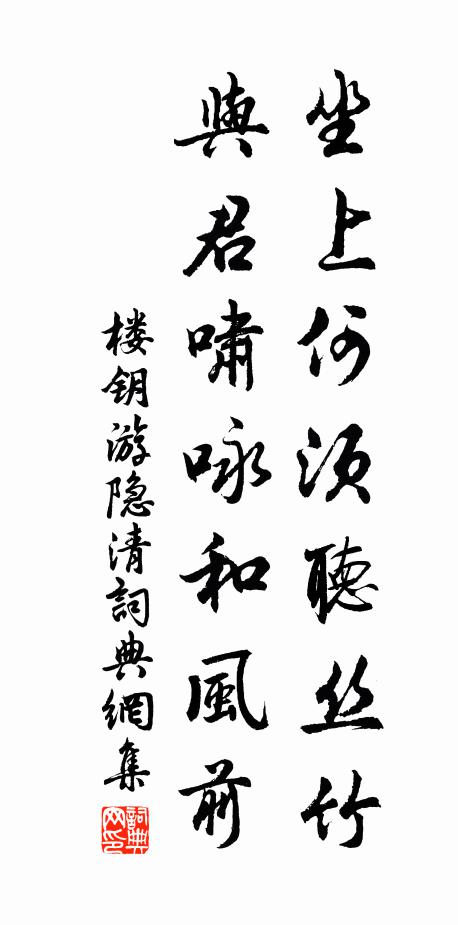 坐上何须聽丝竹
與君嘯咏和風前
楼钥游隐清詞典網集
詞典網印